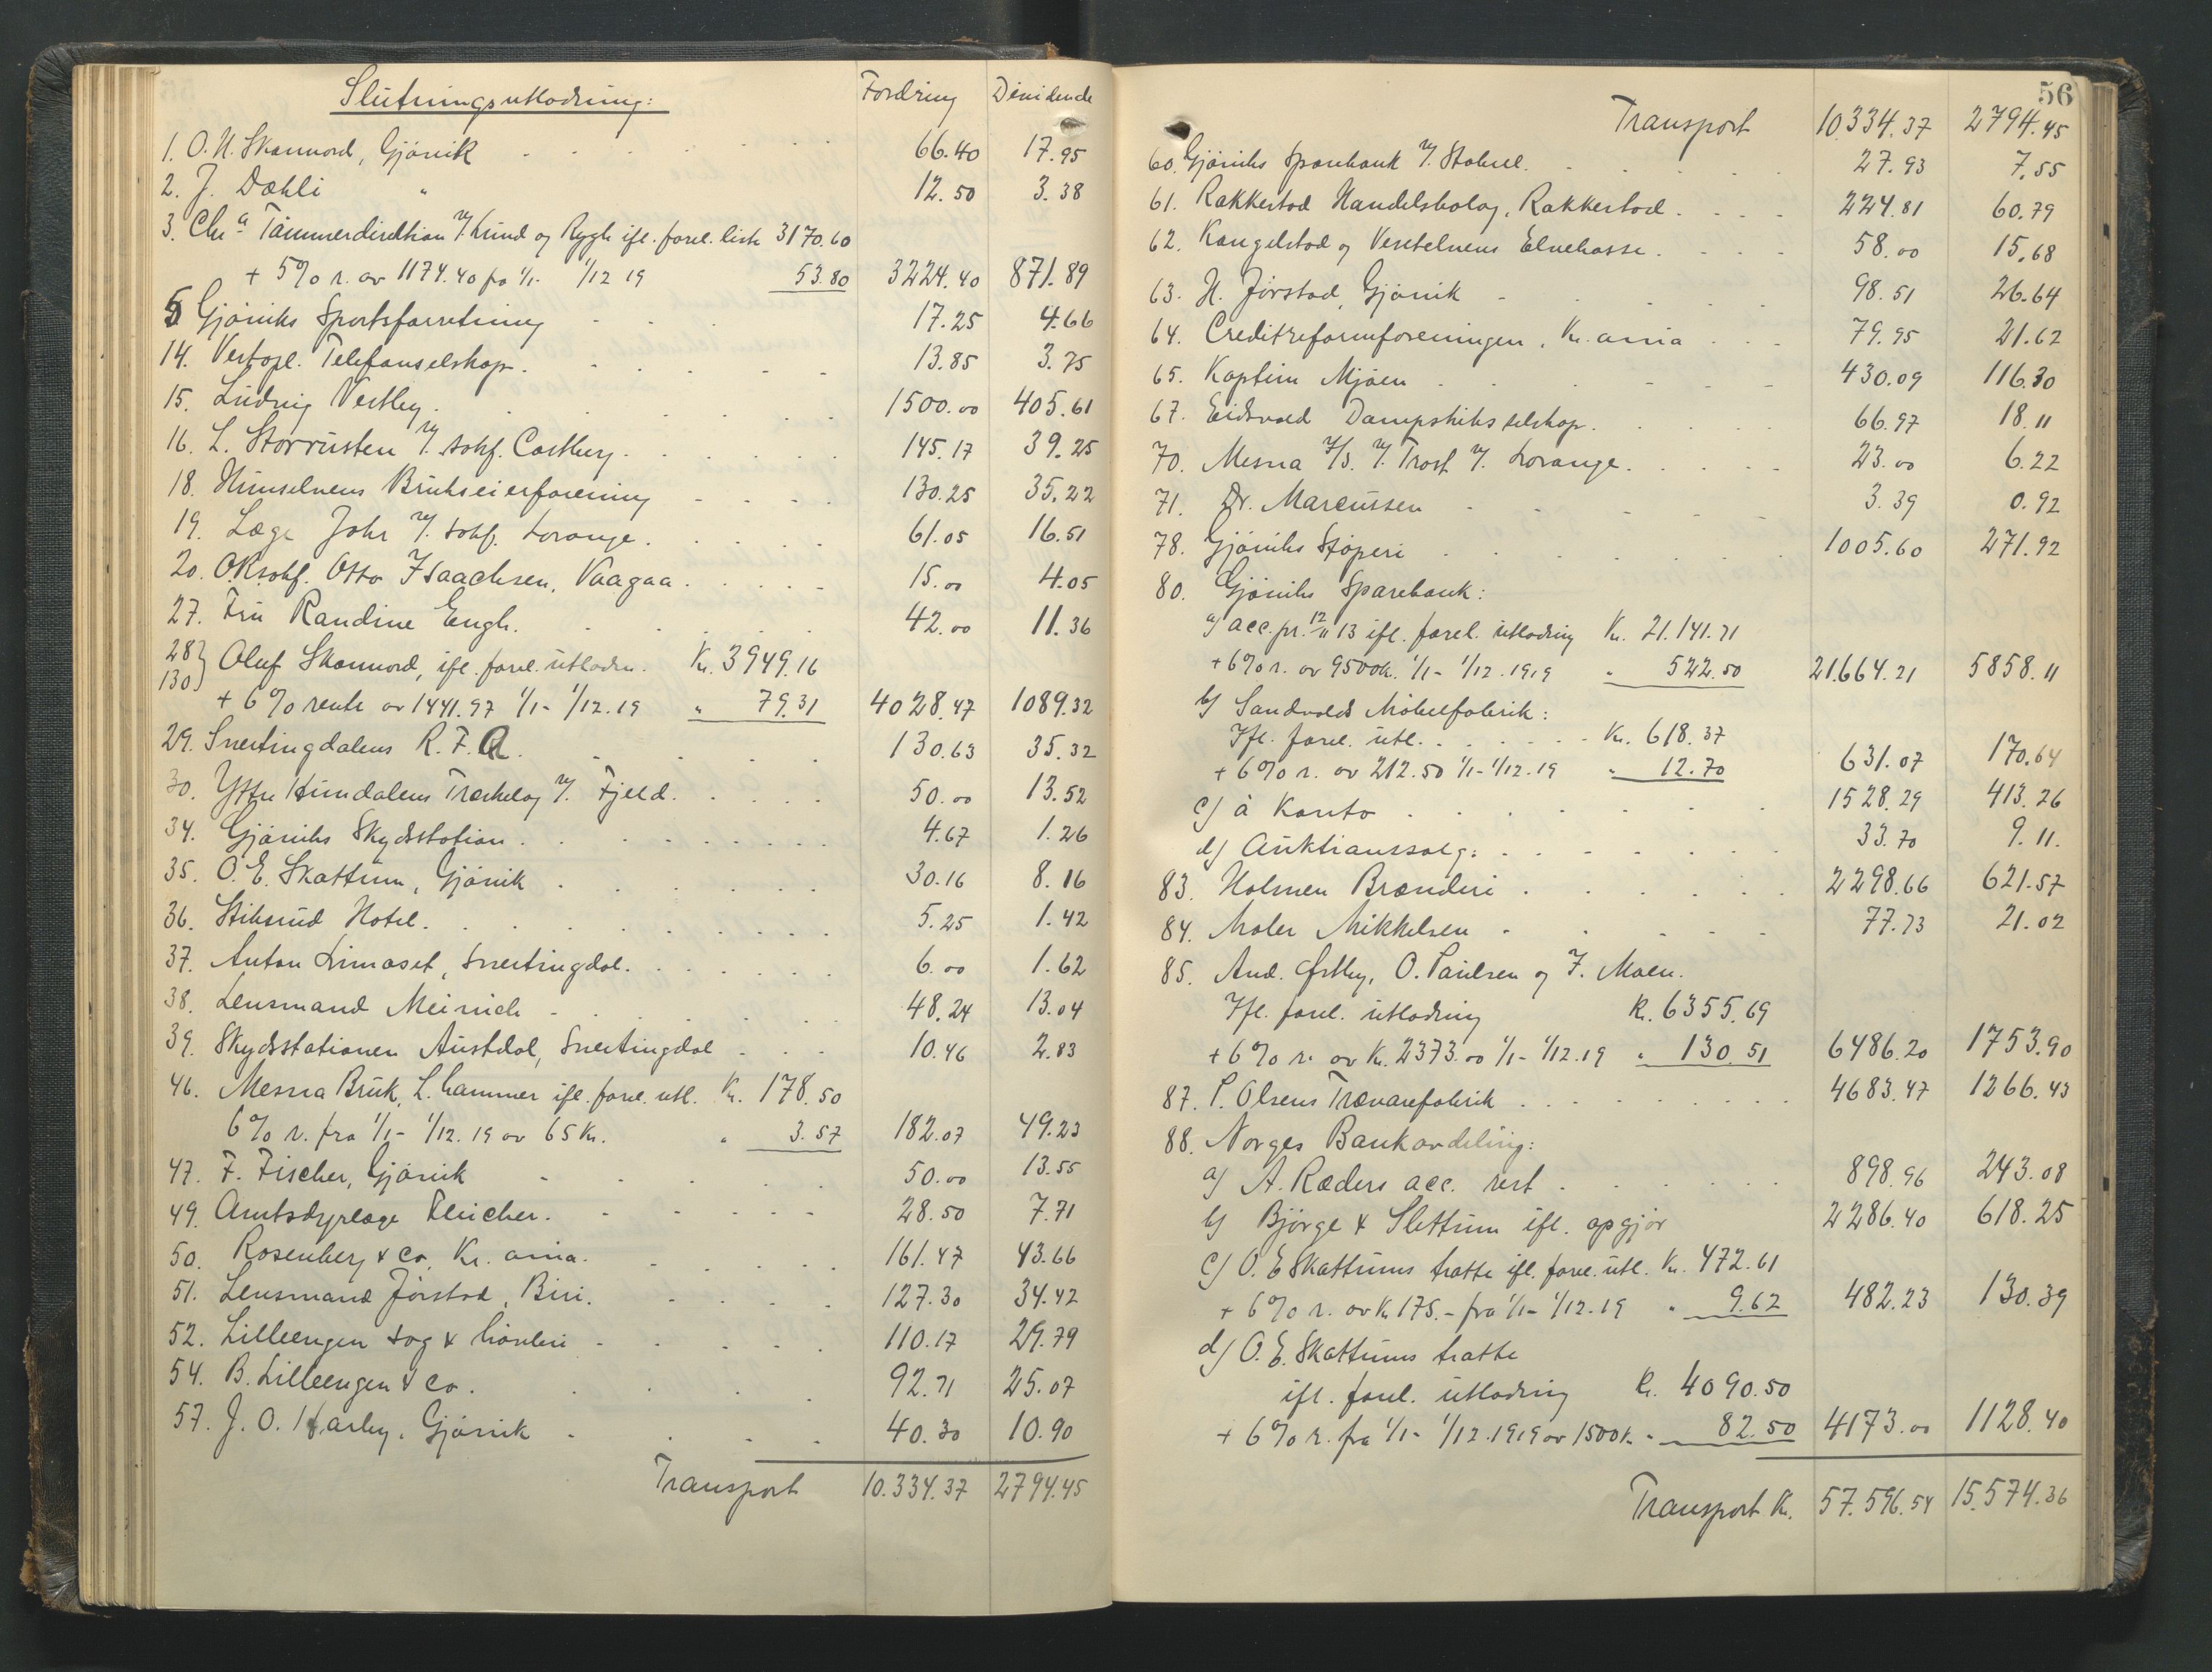 Slutningsutlodning: Fordring Dividende
1. O. H. Skonnord, Gjövik 66.40 17.95
2. J. Dæhli " 12.50 3.38
3. Chra Tömmerdirektion v/ Lund og Rygh ifl. forel. liste 3170.60
+ 5% r. av 1174.40 fra 1/1- 1/12 19 53.80 3224.40 871.89
5 Gjöviks Sportsforretning 17.25 4.66
14. Vestopl. Telefonselskap. 13.85 3.75
15. Ludvig Vestby. 1500.00 405.61
16. L. Storrusten v/ sakf. Castberg. 145.17 39.25
18. Hunselvens Brukseierforening 130.25 35.22
19. Læge Johr v/ sakf. Lorange. 61.05 16.51
20. O.R.sakf. Otto Isaachsen, Vaagaa. 15.00 4.05
27. Fru Randine Engh. 42.00 11.36
28} Oluf Skonnord, ifl. forel. utlodn. Kr. 3949.16
130} + 6% rente av 1441.97 1/1- 1/12.19 " 79.31 4028.47 1089.32
29. Snertingdalens R. F. A. 130.63 35.32
30. Ytre Hundalens Træskelag v/ Fjeld. 50.00 13.52
34. Gjöviks Skydsstation. 4.67 1.26
35. O. E. Skattum, Gjövik 30.16 8.16
36. Stiksrud Hotel. 5.25 1.42
37. Anton Limoset, Snertingdal. 6.00 1.62
38. Lensmand Meinich 48.24 13.04
39. Skydsstationen Austdal, Snertingdal 10.46 2.83
46. Mesna Bruk, L.hammer ifl. forel. utl. Kr. 178.50
6% r. fra 1/1- 1/12.19 av 65 Kr. " 3.57 182.07 49.23
47. F. Fischer, Gjövik 50.00 13.55
49. Amtsdyrlæge Fleicher. 28.50 7.71
50. Rosenberg & Co, Kr.ania. 161.47 43.66
51. Lensmand Jörstad, Biri. 127.30 34.42
52. Lilleengen Sag & Hövleri 110.17 29.79
54. B. Lilleengen & Co. 92.71 25.07
57. J. O. Harby, Gjövik 40.30 10.90
Transport 10.334.37 2794.45
56
Transport 10334.37 2794.45
60. Gjöviks Sparebank v/ Stabel. 27.93 7.55
61. Rakkestad Handelsbolag, Rakkestad. 224.81 60.79
62. Kongelstad og Veseteelvens Elvekasse. 58.00 15.68
63. H. Jörstad, Gjövik 98.51 26.64
64. Creditreformforeningen, Kr.ania 79.95 21.62
65. Kaptein Mjöen 430.09 116.30
67. Eidsvold Dampskibsselskap. 66.97 18.11
70. Mesna A/S. v/ Trost v/ Lorange. 23.00 6.22
71. Dr. Marcussen 3.39 0.92
78. Gjöviks Stöperi 1005.60 271.92
80. Gjöviks Sparebank:
a) acc. pr. 12/11 13 ifl. forel. utlodning Kr. 21.141.71
+ 6% r. av 9500 k. 1/1- 1/12.1919 " 522.50 21.664.21 5858.11
b) Sandvolds Möbelfabrik:
Ifl. forel. utl. Kr. 618.37
+ 6% r. av 212.50 1/1- 1/12.19 " 12.70 631.07 170.64
c) à Konto 1528.29 413.26
d) Auktionssalg: 33.70 9.11.
83. Holmen Brænderi 2298.66 621.57
84. Maler Mikkelsen 77.73 21.02
85. And. Østby, O. Paulsen og F. Moen.
Ifl. forel. utlodning K. 6355.69
+ 6% r. av Kr. 2373.00 1/1- 1/12.19 " 130.51 6486.20 1753.90
87. P. Olsens Trævarefabrik 4683.47 1266.43
88. Norges Bankavdeling:
a) A. Ræders acc. rest 898.96 243.08
b) Bjørge & Slettum ifl. opgjør 2286.40 618.25
c) O. E Skattums tratte ifl. forel. utl. Kr. 472.61
+ 6% r. av Kr 175.- fra 1/1- 1/12.19 " 9.62 482.23 130.39
d) O. E. Skattums tratte
ifl. forel. utlodning K. 4090.50
+ 6% r. fra 1/1- 1/12.1919 av 1500 k. " 82.50 4173.00 1128.40
Transport Kr. 57.596.54 15.574.36